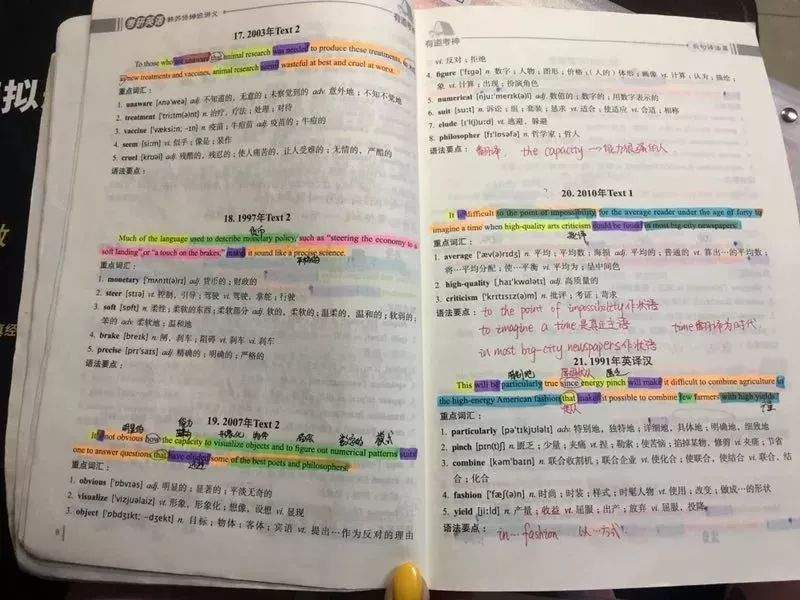 考研英语
17. 2003年Text 2
To those who are unaware that animal research was needed to produce these treatments, as well
as new treatments and vaccines, animal research seems wasteful at best and cruel at worst.
重点词汇:
1. unaware [ʌnə'weə] adj. 不知道的，无意的；未察觉到的 adv. 意外地；不知不觉地
2. treatment ['tri:tm(ə)nt] n. 治疗，疗法；处理；对待
3. vaccine ['væksi:n, -ɪn] n. 疫苗；牛痘苗 adj. 疫苗的；牛痘的
4. seem [si:m] vi. 似乎；像是；装作
5. cruel [kruəl] adj. 残酷的，残忍的；使人痛苦的，让人受难的；无情的，严酷的
语法要点:
18. 1997年Text 2
货币
Much of the language used to describe monetary policy, such as “steering the economy to a
soft landing” or “a touch on the brakes,” makes it sound like a precise science.
重点词汇:
1. monetary ['mʌnɪt(ə)rɪ] adj. 货币的；财政的
2. steer [stɪə] vt. 控制，引导；驾驶 vi. 驾驶，掌舵；行驶
3. soft [sɒft] n. 柔性；柔软的东西；柔软部分 adj. 软的，柔软的；温柔的，温和的；软弱的；
笨的 adv. 柔软地；温和地
4. brake [breɪk] n. 闸，刹车；阻碍 vi. 刹车 vt. 刹车
5. precise [prɪ'saɪs] adj. 精确的；明确的；严格的
语法要点:
19. 2007年Text 2
It is not obvious how the capacity to visualize objects and to figure out numerical patterns suits
one to answer questions that have eluded some of the best poets and philosophers.
重点词汇:
1. obvious ['ɒbvɪəs] adj. 明显的；显著的；平淡无奇的
2. visualize ['vɪzjuəlaɪz] vt. 形象，形象化；想像，设想 vi. 显现
3. object ['ɒbdʒɪkt; -dʒekt] n. 目标；物体；客体；宾语 vt. 提出…作为反对的理由
8
有道考神
长句译法篇
vi. 反对；拒绝
4. figure ['fɪgə] n. 数字；人物；图形；价格；（人的）体形；画像 vi. 计算；认为；描绘；
象 vi. 计算；出现；扮演角色
5. numerical [nju:'merɪk(ə)l] adj. 数值的；数字的；用数字表示的
6. suit [su:t] n. 诉讼；组；套装；恳求 vt. 适合；使适应 vi. 合适；相称
7. elude [ɪ'l(j)u:d] vt. 逃避，躲避
8. philosopher [fɪ'lɒsəfə] n. 哲学家；哲人
语法要点: 翻译, the capacity → 能力很强的人
20. 2010年Text 1
It is difficult to the point of impossibility for the average reader under the age of forty to
imagine a time when high-quality arts criticism could be found in most big-city newspapers.
批评
重点词汇:
1. average [æv(ə)rɪdʒ] n. 平均；平均数；海损 adj. 平均的；普通的 vt. 算出…的平均数；
将…平均分配；使…平衡 vi. 平均为；呈中间色
2. high-quality [,haɪ'kwɑlətɪ] adj. 高质量的
3. criticism ['krɪtɪsɪz(ə)m] n. 批评；考证；苛求
语法要点: to the point of impossibility作状语
to imagine a time是真正主语 time翻译为时代
in most big-city newspapers作状语
21. 1991年英译汉
This will be particularly true since energy pinch will make it difficult to combine agriculture in
the high-energy American fashion that makes it possible to combine few farmers with high yields.
重点词汇:
1. particularly [pə'tɪkjuləlɪ] adv. 特别地，独特地；详细地，具体地；明确地，细致地
2. pinch [pɪn(t)ʃ] n. 匮乏；少量；夹痛 vt. 捏；勒索；使苦恼；掐掉某物，修剪 vi. 夹痛；节省
3. combine [kəm'baɪn] n. 联合收割机；联合企业 vt. 使化合；使联合，使结合 vi. 联合，结
合；化合
4. fashion ['fæʃ(ə)n] n. 时尚；时装；样式；时髦人物 vt. 使用；改变；做成…的形状
5. yield [ji:ld] n. 产量；收益 vt. 屈服；出产；放弃 vi. 屈服，投降
语法要点: in… fashion 以…方式